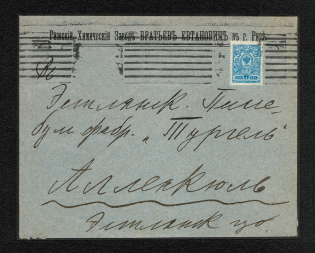 Рижскій Химическій Заводъ БРАТЬЕВЪ ЕВТАНОВИЧЪ въ г. Ригѣ
Эстлянск.
фабр. „Тургель"
Алленкюль
Эстлянск